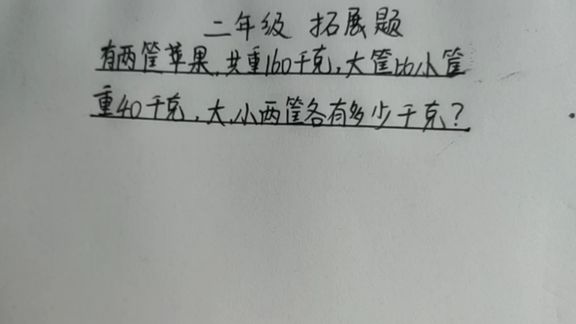 二年级 拓展题
有两筐苹果,共重160千克,大筐比小筐
重40千克,大,小两筐各有多少千克?